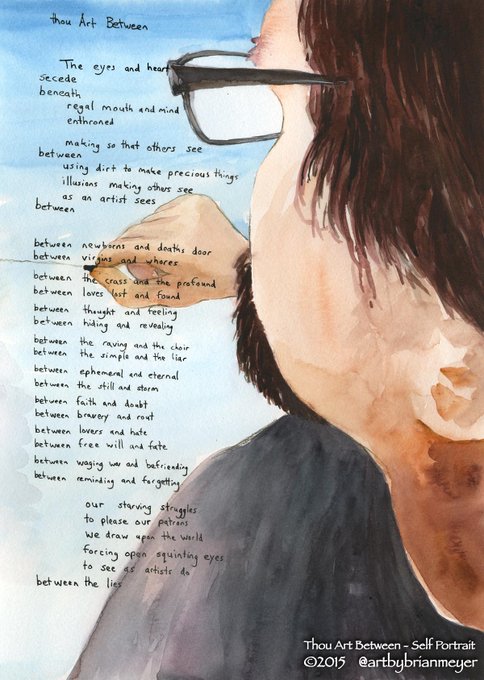 thou Art Between
The eyes and heart
secede
beneath
regal mouth and mind
enthroned
making so that others see
between
using dirt to make precious things
illusions making others see
as an artist sees
between
between newborns and deaths door
between virgins and whores
between the crass and the profound
between loves lost and found
between thought and feeling
between hiding and revealing
between the raving and the choir
between the simple and the liar
between ephemeral and eternal
between the still and storm
between faith and doubt
between bravery and rout
between lovers and hate
between free will and fate
between waging war and befriending
between reminding and forgetting
our starving struggles
to please our patrons
we draw upon the world
forcing open squinting eyes
to see as artists do
between the lies
Thou Art Between - Self Portrait
©2015 @artbybrianmeyer